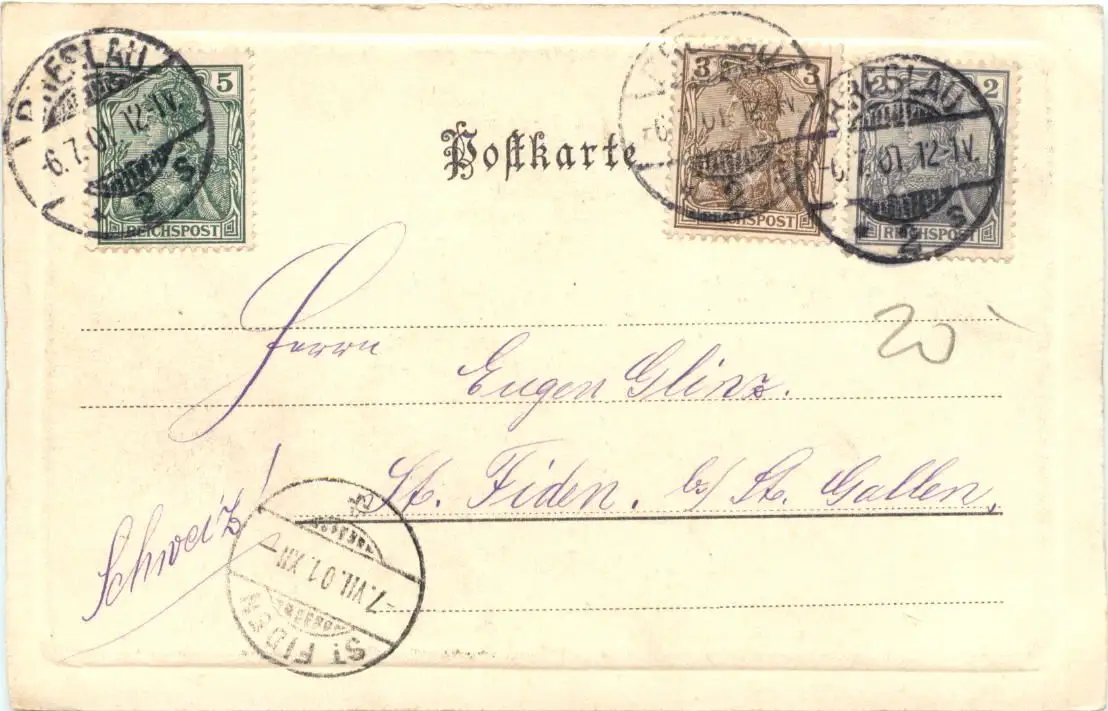 BRESLAU
-6.7.01. 12-1V.
* 2 s
5
REICHSPOST
Postkarte
BRESLAU
-6.7.01. 12-1V.
* 2 s
3 3
REICHSPOST
BRESLAU
-6.7.01. 12-1V.
* 2 s
2 2
REICHSPOST
20
Herrn
Eugen Glinz.
St. Fiden. b/ St. Gallen,
Schweiz!
ST. FIDEN
-7.VII.01.XII-